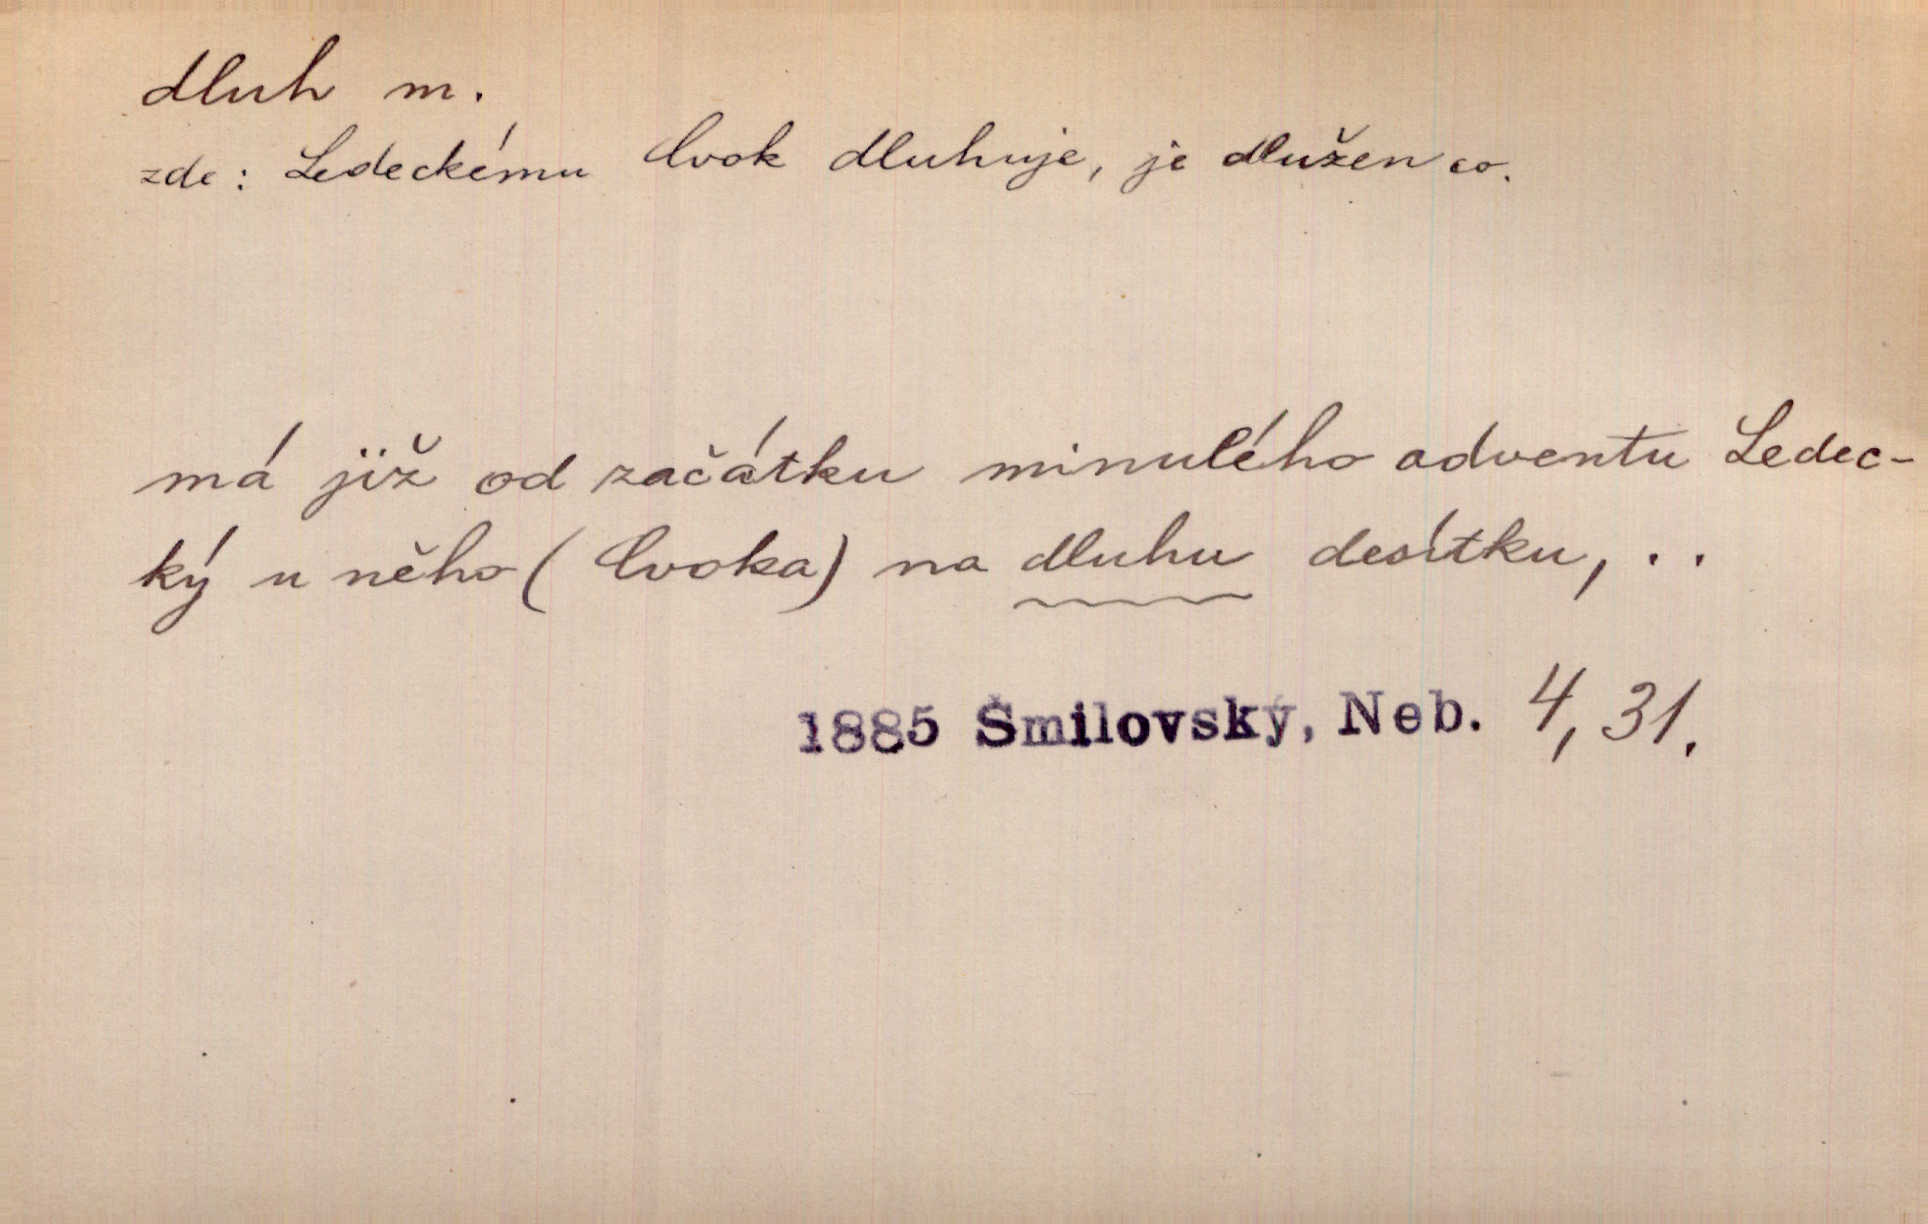 dluh m.
zde: Ledeckému Cvok dluhuje, je dlužen co.
má již od začátku minulého adventu Ledec-
ký u něho (Cvoka) na dluhu desítku, . .
1885 Šmilovský, Neb. 4, 31.